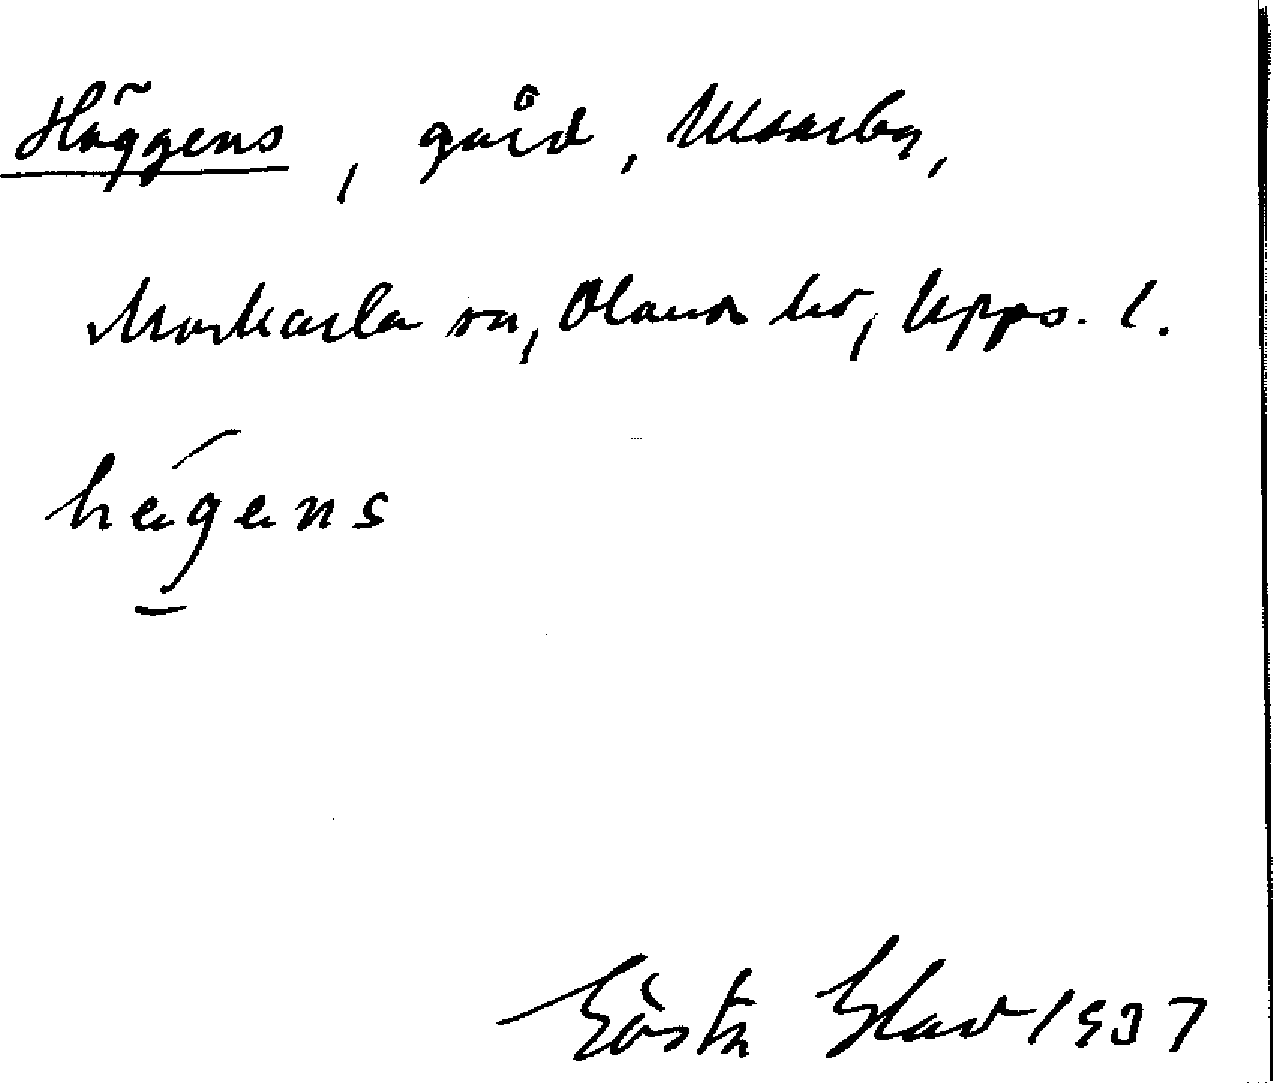 Häggens, gård, Masarby,
Morkarla sn, Olands hd, Upps. l.
hägens
Gösta Glad 1937